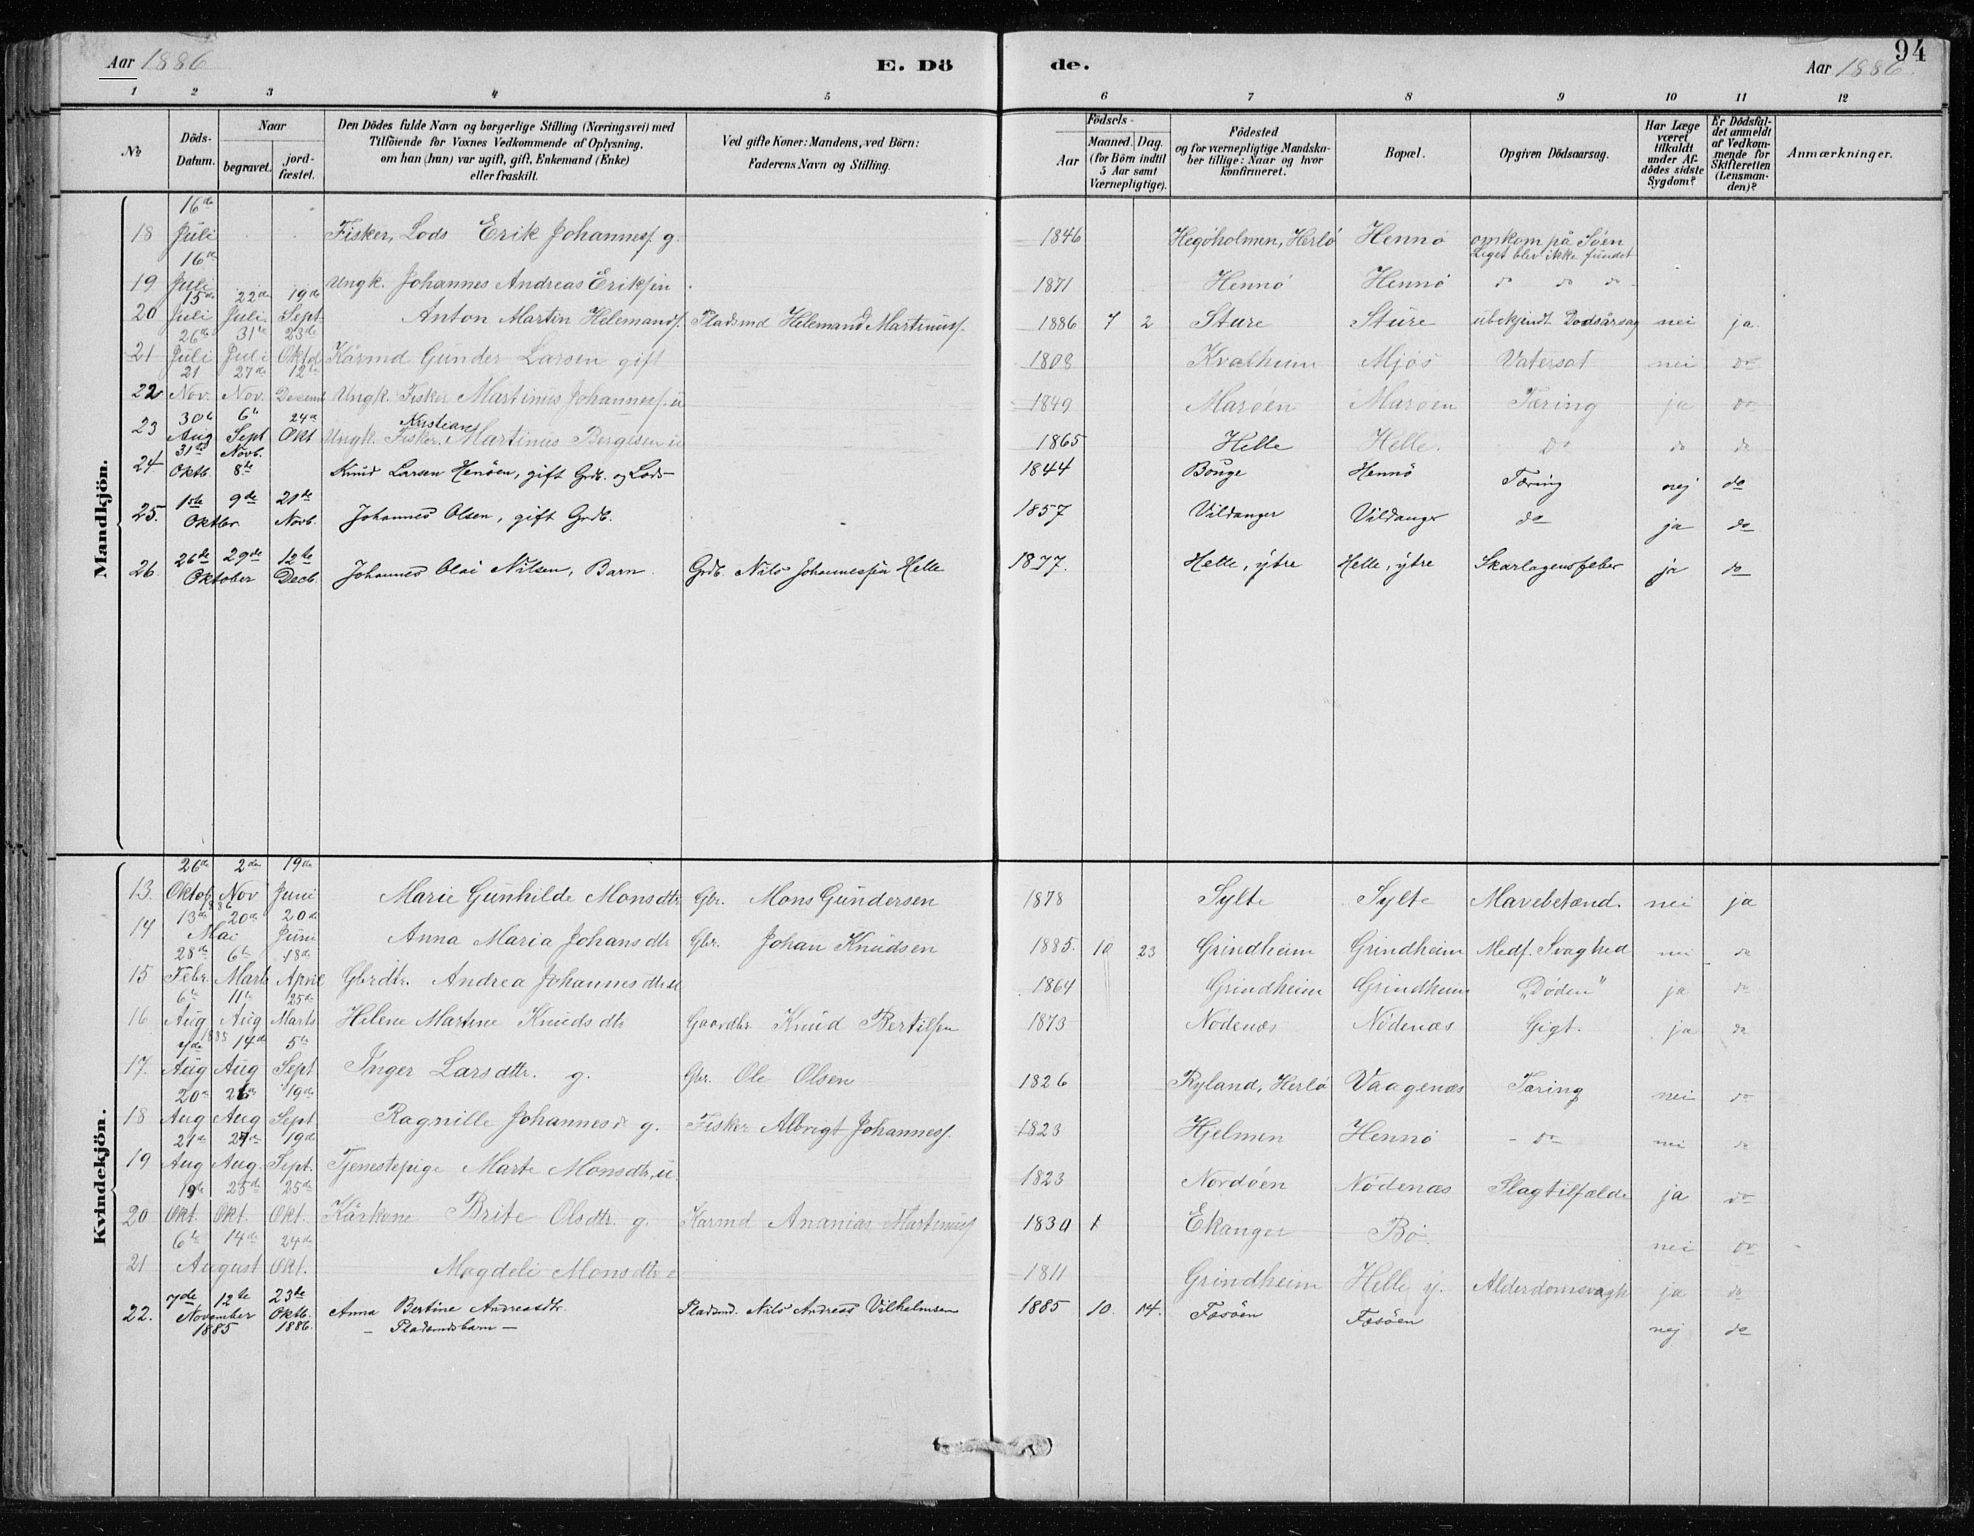 Aar 1886 E. Dö de. Aar 1886. 94
1 2 3 4 5 6 7 8 9 10 11 12
№ Döds-Datum. Naar begravet. jordfæstet. Den Dödes fulde Navn og borgerlige Stilling (Næringsvei) med Tilföiende for Voxnes Vedkommende af Oplysning, om han (hun) var ugift, gift, Enkemand (Enke) eller fraskilt. Ved gifte Koner: Mandens, ved Börn: Faderens Navn og Stilling. Födsels- Aar Maaned. Dag. (for Börn indtil 5 Aar samt Værnepligtige). Födested og for værnepligtige Mandskaber tillige: Naar og hvor konfirmeret. Bopæl. Opgiven Dödsaarsag. Har Læge været tilkaldt under Afdödes sidste Sygdom? Er Dödsfaldet anmeldt af Vedkommende for Skifteretten (Lensmanden)? Anmærkninger.
Mandkjön.
18 16de Juli Fisker, Lods Erik Johannesf. g. 1846 Hegøholmen, Herlø Hennø omkom på Søen Liget blev ikke fundet
19 16de Juli Ungk. Johannes Andreas Eriksen 1871 Hennø Hennø do do do
20 15de Juli 22de Juli 19de Sept. Anton Martin Helemandsf. Pladsmd Helemand Martinusf. 1886 7 2 Sture Sture ubekjendt Dødsårsag nei ja
21 26de Juli 31te Juli 23de Oktob Kårmd Gunder Larsen gift 1808 Kvalheim Mjøs Vatersot nei do
22 21 Nov. 27de Nov. 12te Decemb Ungk. Fisker Martinus Johannesf. u 1849 Marøen Marøen Tæring ja do
23 30te Aug 6te Sept 24de Okt Ungk. Fisker. Kristian Martinus Bergesen u 1865 Helle Helle. Do do do
24 31te Oktb. Novb. 8de Knud Larsen Henøen, gift Grdb. og Lods 1844 Bouge Hennø Tæring nej do
25. 1ste 9de Oktbr 21de Novb. Johannes Olsen, gift Grdb. 1857 Vildanger Vildanger do ja do
26. 26de 29de Oktober 12te Decb Johannes Olai Nilsen, Barn. Grdb. Nils Johannessen Helle 1877. Helle, ytre Helle, ytre Skarlagensfeber ja do
Kvindekjön.
13. 26de Oktob 2den Nov 19de Juni Marie Gunhilde Monsdtr Gbr. Mons Gundersen 1878 Sylte Sylte Mavebetænd. nei ja
14 1886 13de 20de Mai 20de Juni Anna Maria Johansdtr Gbr. Johan Knudsen 1885. 10 23 Grindheim Grindheim Medf. Svaghed nei do
15 28de Febr. 6te Marts 18de April Gbrdtr. Andrea Johannesdtr u 1864 Grindheim Grindheim "Døden" ja do
16 6te Aug 11te Aug 25de Marts Helene Martine Knudsdtr Gaardbr Knud Bertilsen 1873 Nødenæs Nødenæs Gigt. ja do
17. 7de Aug 1885 14de Aug 5te Sept Inger Larsdtr. g. Gbr. Ole Olsen 1826 Ryland, Herlø Vaagenæs Tæring nei do
18 20de Aug Aug 19de Sept Ragnille Johannesd. g. Fisker Albregt Johannesf. 1823 Hjelmen Hennø do nei do
19 21de Aug 27de Aug. 19de Sept. Tjenestepige Marte Monsdtr, u. 1823 Nordøen Nødenæs Slagtilfælde ja do
20 19de Okt. 25de Okt. 25de Okt. Kårkone Brite Olsdtr. g. Karmd Ananias Martinusf 1830 Ekanger Bø nei do
21 6te 14de August 24de Okt. Magdeli Monsdtr e 1811 Grindheim Helle, y. Alderdomsvagh ja do
22. 7de 12te November 1885 23de Oktb. 1886. Anna Bertine Andreasdtr. – Pladsmdsbarn – Pladsmd. Nils Andreas Vilhelmsen 1885 10. 14. Fosøen Fosøen nej do